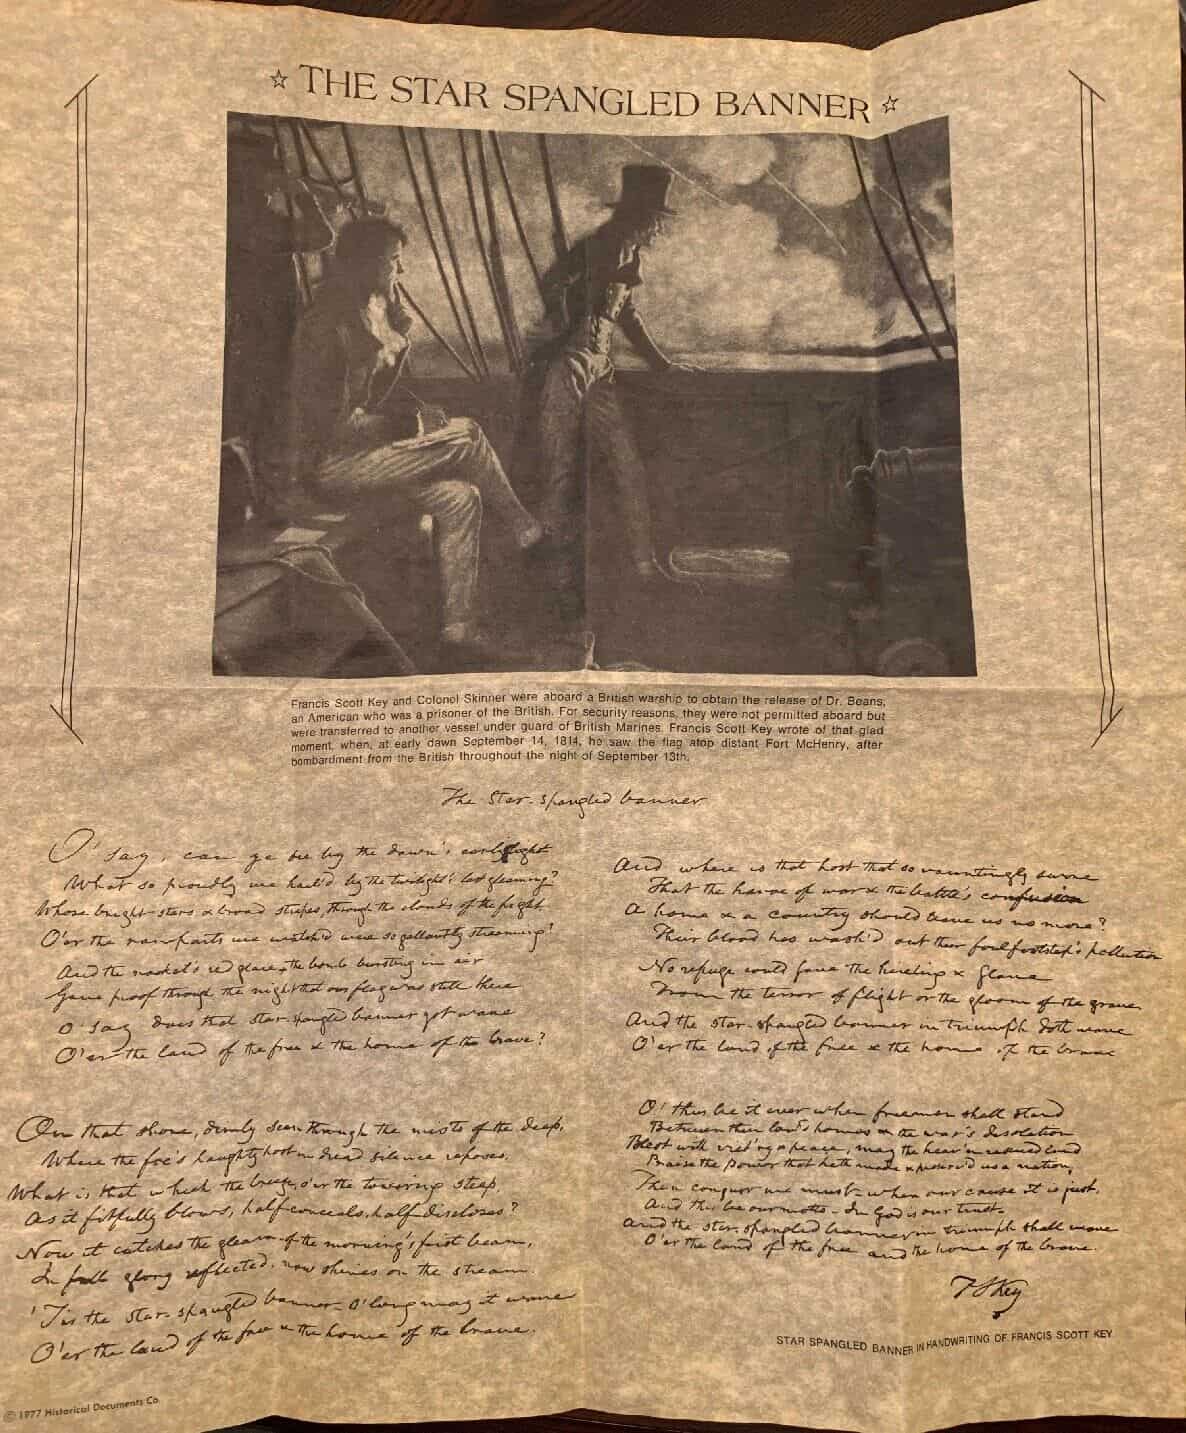 ☆ THE STAR SPANGLED BANNER ☆
Francis Scott Key and Colonel Skinner were aboard a British warship to obtain the release of Dr. Beans,
an American who was a prisoner of the British. For security reasons, they were not permitted aboard but
were transferred to another vessel under guard of British Marines. Francis Scott Key wrote of that glad
moment, when, at early dawn September 14, 1814, he saw the flag atop distant Fort McHenry, after
bombardment from the British throughout the night of September 13th.
The Star-spangled banner
O! say, can ye see by the dawn's early light
What so proudly we hail'd by the twilight's last gleaming?
Whose bright stars & broad stripes, through the clouds of the fight
O'er the ramparts we watch'd were so gallantly streaming?
And the rocket's red glare, the bomb bursting in air
Gave proof through the night that our flag was still there
O! say does that star-spangled banner yet wave
O'er the land of the free & the home of the brave?
On that shore, dimly seen through the mists of the deep,
Where the foe's haughty host in dread silence reposes,
What is that which the breeze, o'er the towering steep,
As it fitfully blows, half conceals, half discloses?
Now it catches the gleam of the morning's first beam,
In full glory reflected, now shines on the stream.
'Tis the star-spangled banner - O! long may it wave
O'er the land of the free & the home of the brave.
And where is that host that so vauntingly swore
That the havoc of war & the battle's confusion
A home & a country should leave us no more?
Their blood has wash'd out their foul footstep's pollution
No refuge could save the hireling & slave
From the terror of flight or the gloom of the grave
And the star-spangled banner in triumph doth wave
O'er the land of the free & the home of the brave
O! thus be it ever when freemen shall stand
Between their lov'd homes & the war's desolation
Blest with vict'ry & peace, may the heav'n rescued land
Praise the power that hath made & preserv'd us a nation,
Then conquer we must - when our cause it is just,
And this be our motto - In God is our trust.
And the star-spangled banner in triumph shall wave
O'er the land of the free and the home of the brave.
F S Key
STAR SPANGLED BANNER IN HANDWRITING OF FRANCIS SCOTT KEY
© 1977 Historical Documents Co.